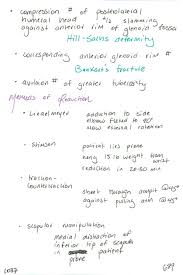 • compression # of posterolateral
humeral head w/ slamming
against anterior rim of glenoid fossa
Hill-Sachs deformity
• corresponding anterior glenoid rim #
Bankart's fracture
• avulsion # of greater tuberosity
Methods of reduction
• adduction to side
elbow flexed to 90°
slow external rotation
• Stimson patient lies prone
hang 15 lb weight from wrist
reduction in 20-30 min
• traction-
countertraction sheet through armpit @45°
against pulling arm @45°
• scapular manipulation
medial distraction of
inferior tip of scapula
in patient
prone
699